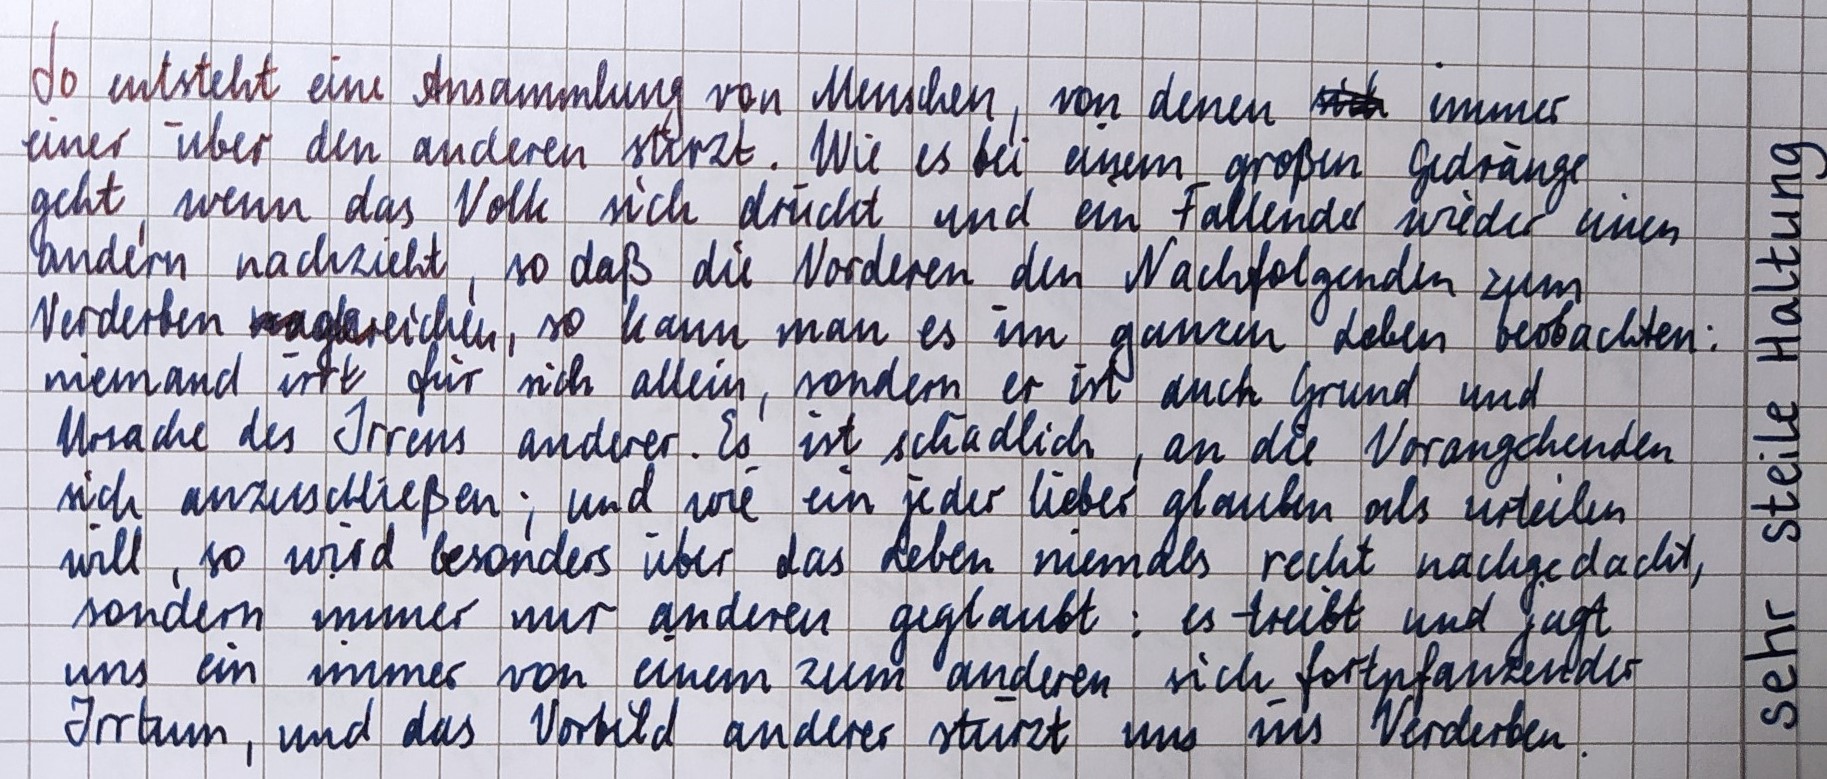 So entsteht eine Ansammlung von Menschen, von denen immer
einer über den anderen stürzt. Wie es bei einem großen Gedränge
geht, wenn das Volk sich drückt und ein Fallender wieder einen
andern nachzieht, so daß die Vorderen den Nachfolgenden zum
Verderben gereichen, so kann man es im ganzen Leben beobachten:
niemand irrt für sich allein, sondern er ist auch Grund und
Ursache des Irrens anderer. Es ist schädlich, an die Vorangehenden
sich anzuschließen; und wie ein jeder lieber glauben als urteilen
will, so wird besonders über das Leben niemals recht nachgedacht,
sondern immer nur anderen geglaubt: es treibt und jagt
uns ein immer von einem zum anderen sich fortpfanzender
Irrtum, und das Vorbild anderer stürzt uns ins Verderben.
sehr steile Haltung